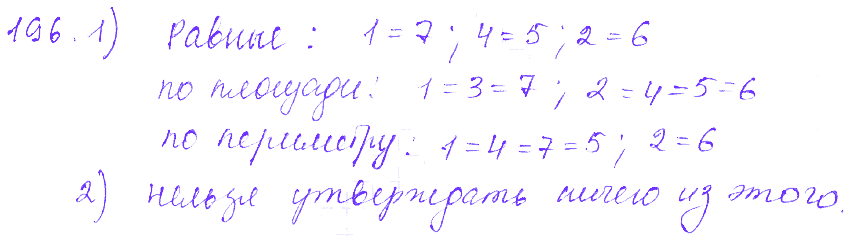 196. 1) Равные: 1 = 7; 4 = 5; 2 = 6
по площади: 1 = 3 = 7; 2 = 4 = 5 = 6
по периметру: 1 = 4 = 7 = 5; 2 = 6
2) нельзя утверждать ничего из этого.